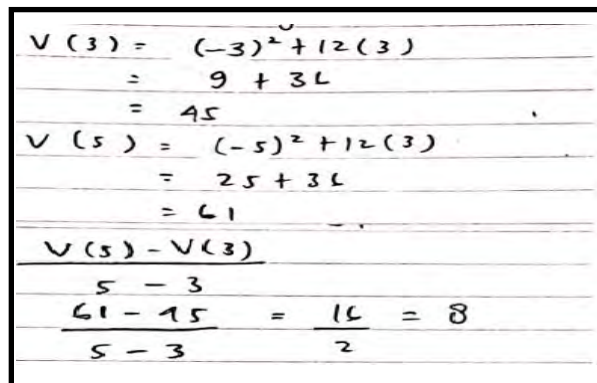 V(3) = (-3)² + 12(3)
= 9 + 36
= 45
V(5) = (-5)² + 12(3)
= 25 + 36
= 61
V(5) - V(3)
5 - 3
61 - 45 = 16 = 8
5 - 3 2